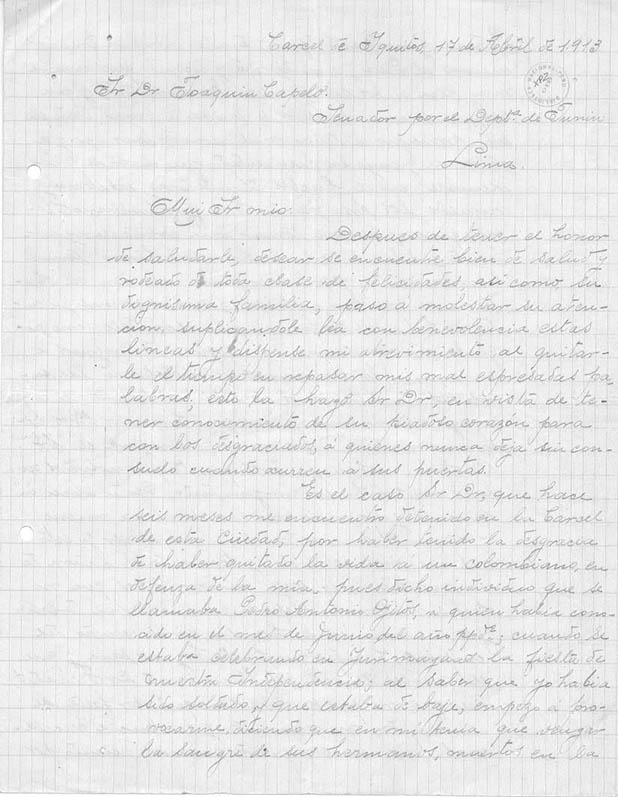 Carcel de Iquitos, 17 de Abril de 1913
Sr Dr Joaquin Capelo.
Senador por el Deptº. de Junin
Lima.
Mui Sr mio:
Despues de tener el honor
de saludarle, desear se encuentre bien de salud y
rodeado de toda clase de felicidades, asi como su
dignisima familia, paso á molestar su aten-
cion, suplicandole lea con benevolencia estas
lineas y dispense mi atrevimiento al quitar-
le el tiempo en repasar mis mal espresadas pa-
labras; esto lo hago Sr Dr, en vista de te-
ner conocimiento de su piadoso corazón para
con los desgraciados, á quienes nunca deja sin con-
suelo cuando ocurren á sus puertas.
Es el caso Sr Dr, que hace
seis meses me encuentro detenido en la Carcel
de esta Ciudad, por haber tenido la desgracia
de haber quitado la vida a un colombiano, en
defenza de la mia. pues dicho individuo que se
llamaba Pedro Antonio a quien habia cono-
cido en el mes de Junio del año ppdº.; cuando se
estaba celebrando en la fiesta de
nuestra Independencia; al saber que yo habia
sido soldado, y que estaba de baja, empezo a pro-
vocarme, diciendo que en mi tenia que vengar
la sangre de sus hermanos, muertos en la